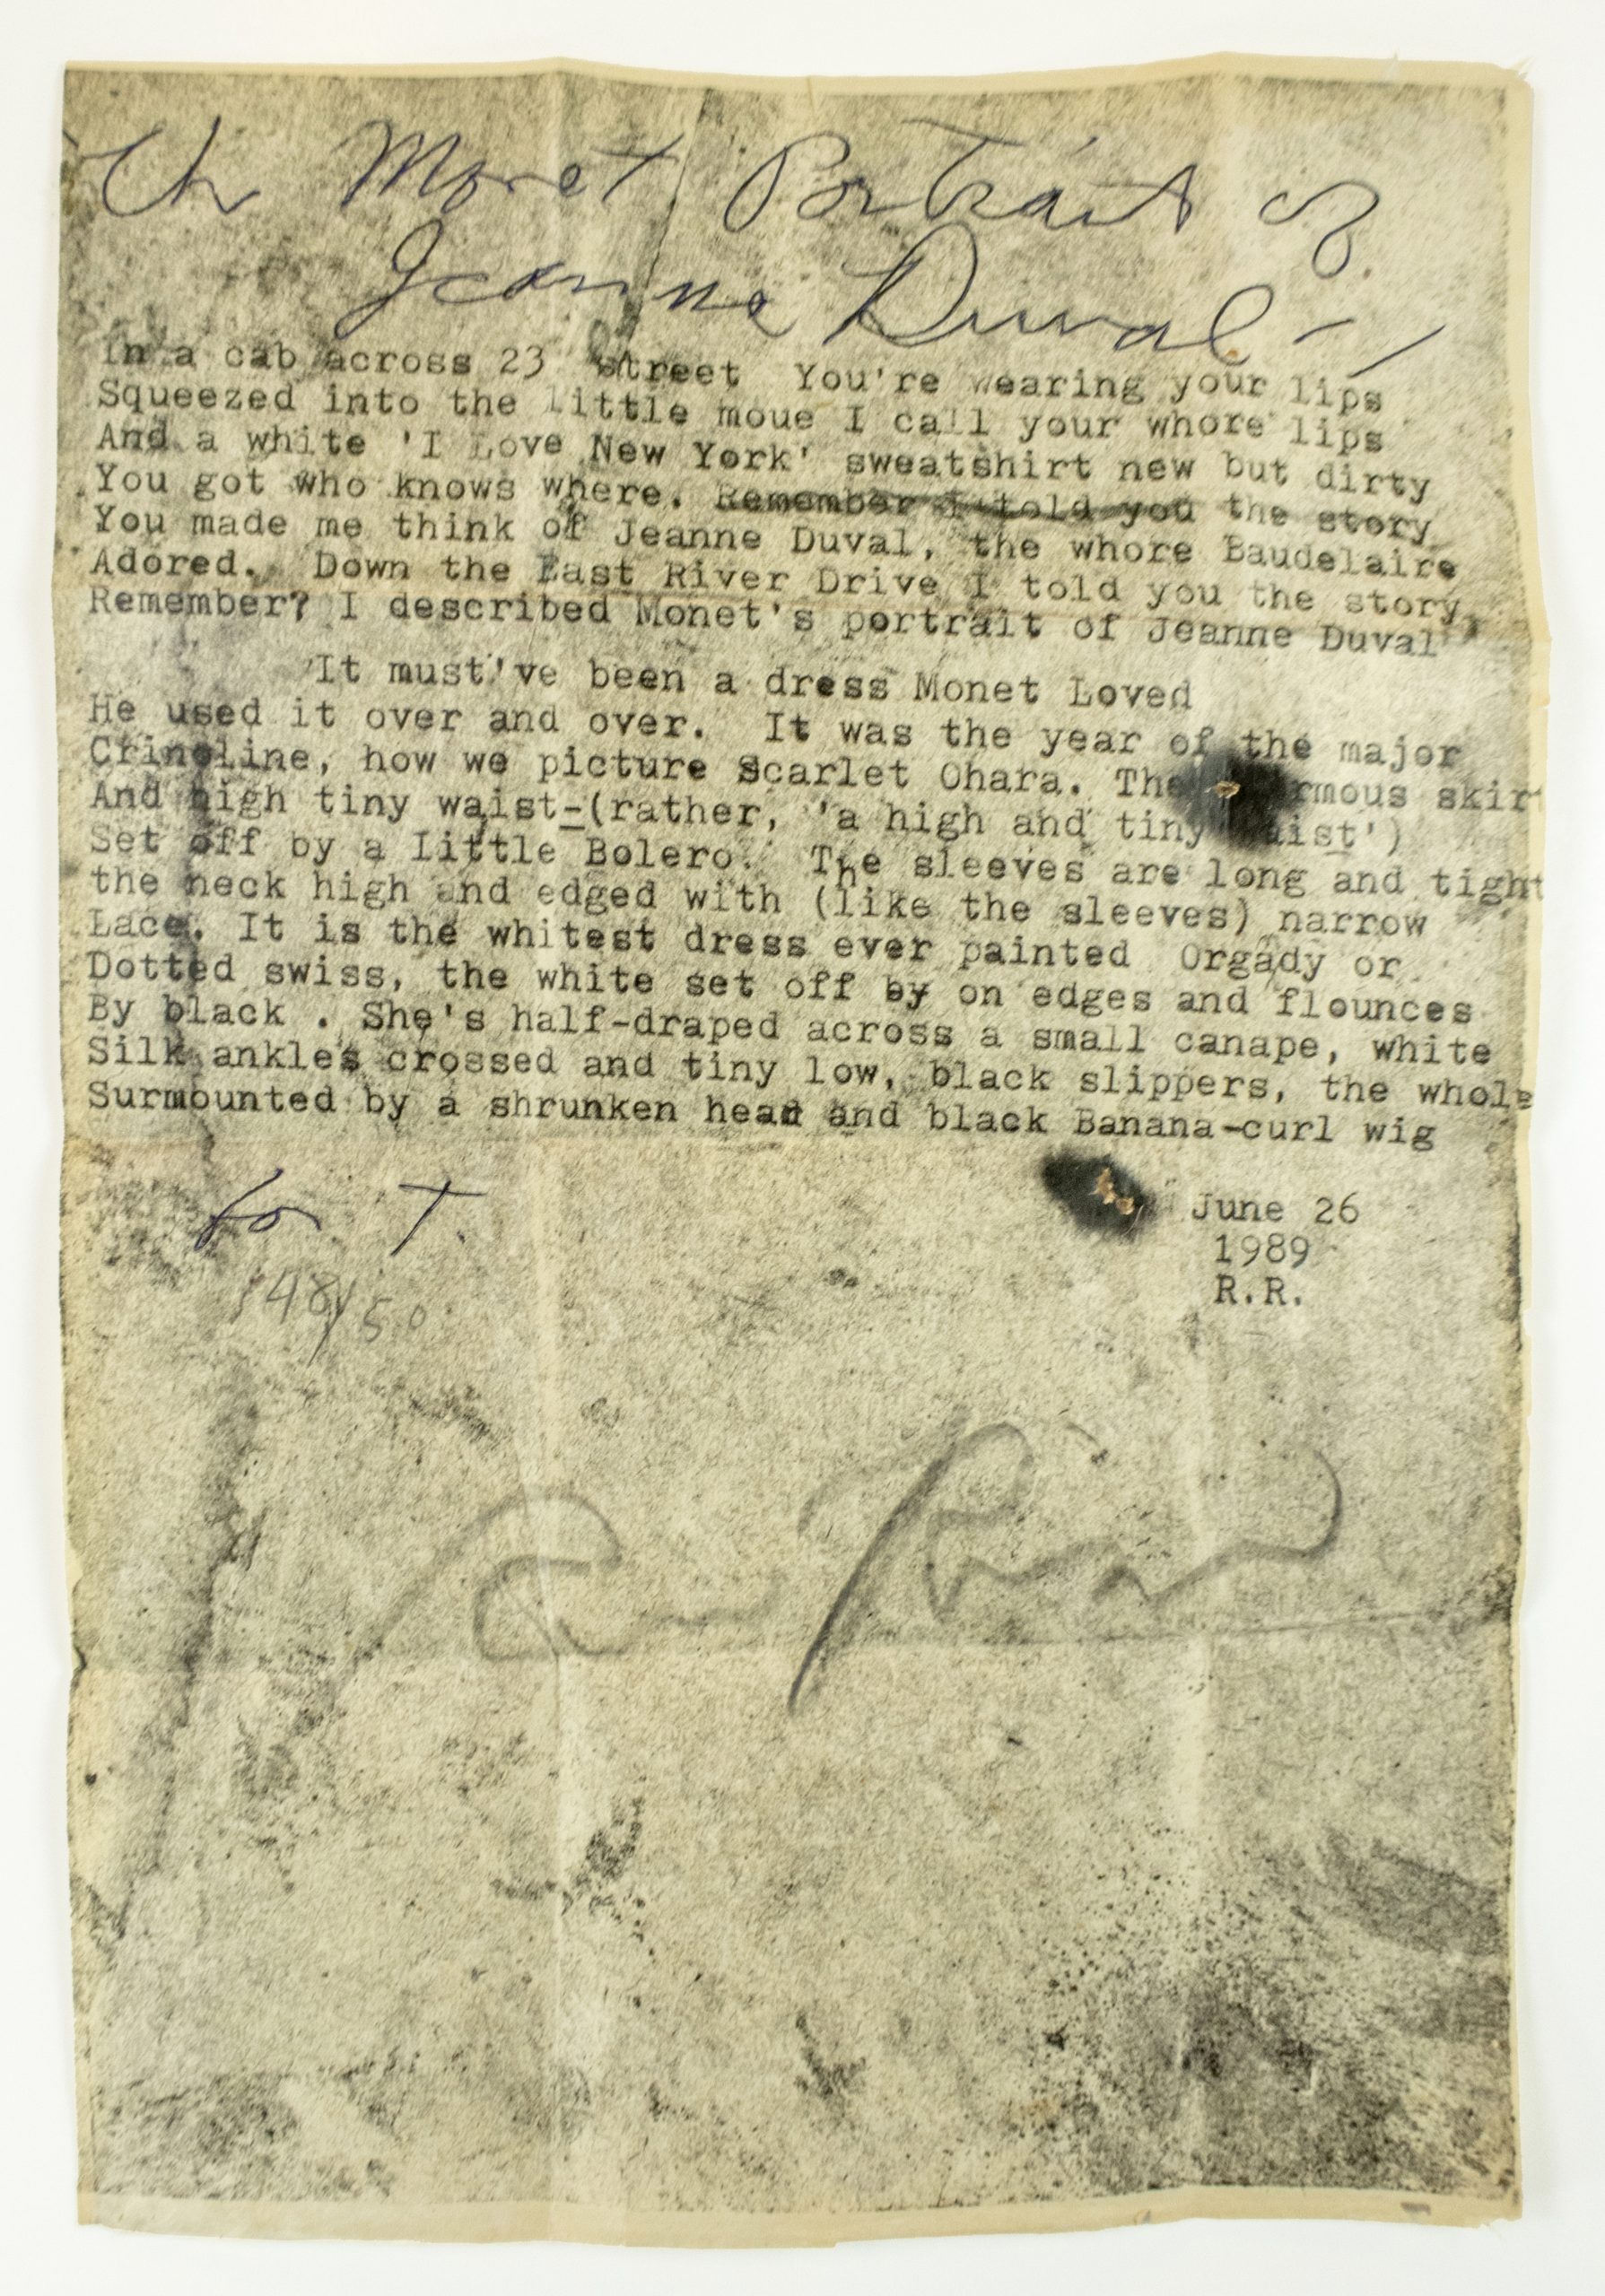 On Monet Portrait of
Jeanne Duval -
In a cab across 23 street You're wearing your lips
Squeezed into the little moue I call your whore lips
And a white 'I Love New York' sweatshirt new but dirty
You got who knows where. Remember I told you the story
You made me think of Jeanne Duval, the whore Baudelaire
Adored. Down the East River Drive I told you the story
Remember? I described Monet's portrait of Jeanne Duval
It must've been a dress Monet Loved
He used it over and over. It was the year of the major
Crinoline, how we picture Scarlet Ohara. The rmous skir
And high tiny waist-(rather, 'a high and tiny aist')
Set off by a Little Bolero. The sleeves are long and tight
the neck high and edged with (like the sleeves) narrow
Lace. It is the whitest dress ever painted Orgady or
Dotted swiss, the white set off by on edges and flounces
By black . She's half-draped across a small canape, white
Silk ankles crossed and tiny low, black slippers, the whole
Surmounted by a shrunken head and black Banana-curl wig
for T.
June 26
1989
R.R.
148/50